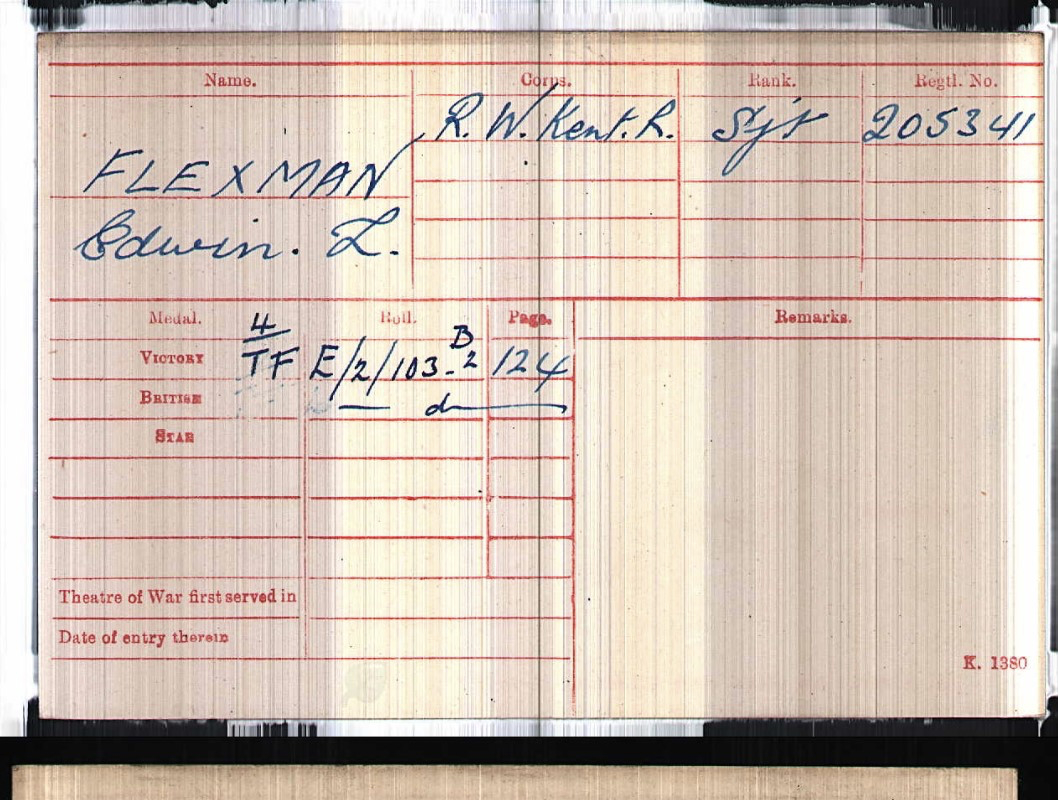 Name. Corps. Rank. Regtl. No.
R. W. Kent. R. Sjt 205341
FLEXMAN
Edwin. L.
Medal. Roll. Page. Remarks.
VICTORY 4/TF E/2/103 B2 124
BRITISH — do —
STAR
Theatre of War first served in
Date of entry therein
K. 1380